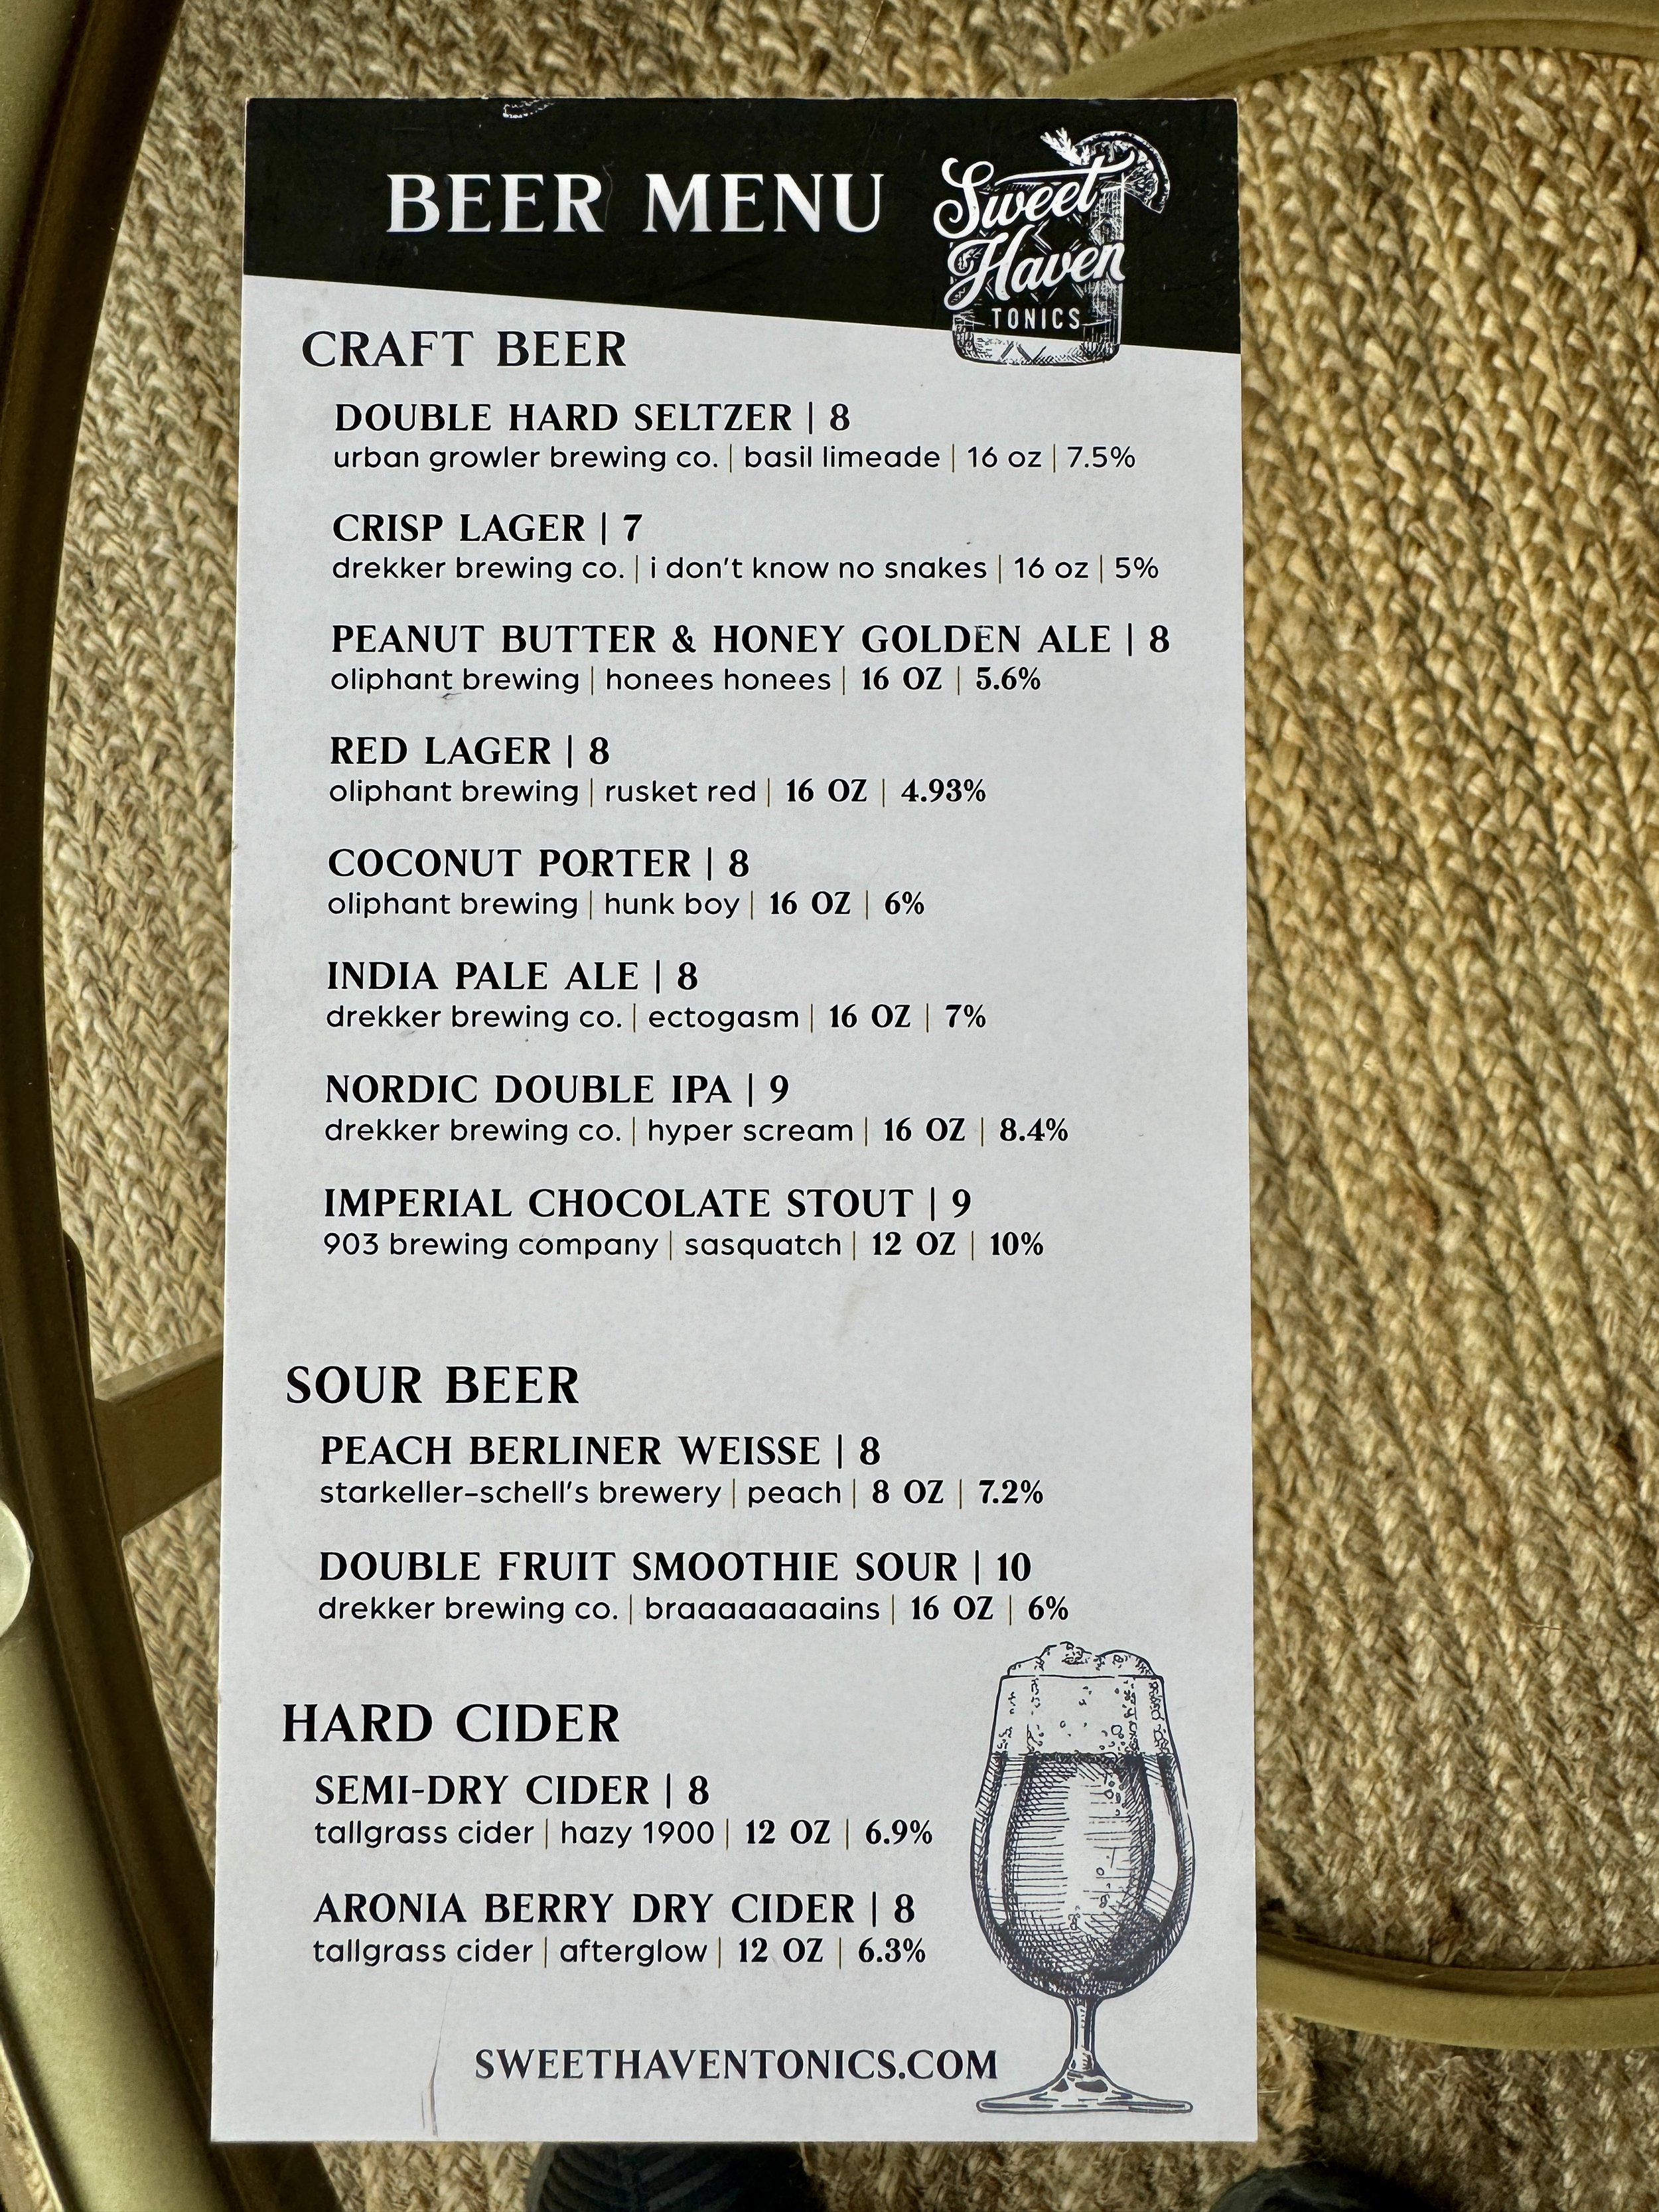 BEER MENU
Sweet
Haven
TONICS
CRAFT BEER
DOUBLE HARD SELTZER | 8
urban growler brewing co. | basil limeade | 16 oz | 7.5%
CRISP LAGER | 7
drekker brewing co. | i don't know no snakes | 16 oz | 5%
PEANUT BUTTER & HONEY GOLDEN ALE | 8
oliphant brewing | honees honees | 16 OZ | 5.6%
RED LAGER | 8
oliphant brewing | rusket red | 16 OZ | 4.93%
COCONUT PORTER | 8
oliphant brewing | hunk boy | 16 OZ | 6%
INDIA PALE ALE | 8
drekker brewing co. | ectogasm | 16 OZ | 7%
NORDIC DOUBLE IPA | 9
drekker brewing co. | hyper scream | 16 OZ | 8.4%
IMPERIAL CHOCOLATE STOUT | 9
903 brewing company | sasquatch | 12 OZ | 10%
SOUR BEER
PEACH BERLINER WEISSE | 8
starkeller-schell's brewery | peach | 8 OZ | 7.2%
DOUBLE FRUIT SMOOTHIE SOUR | 10
drekker brewing co. | braaaaaaaaains | 16 OZ | 6%
HARD CIDER
SEMI-DRY CIDER | 8
tallgrass cider | hazy 1900 | 12 OZ | 6.9%
ARONIA BERRY DRY CIDER | 8
tallgrass cider | afterglow | 12 OZ | 6.3%
SWEETHAVENTONICS.COM